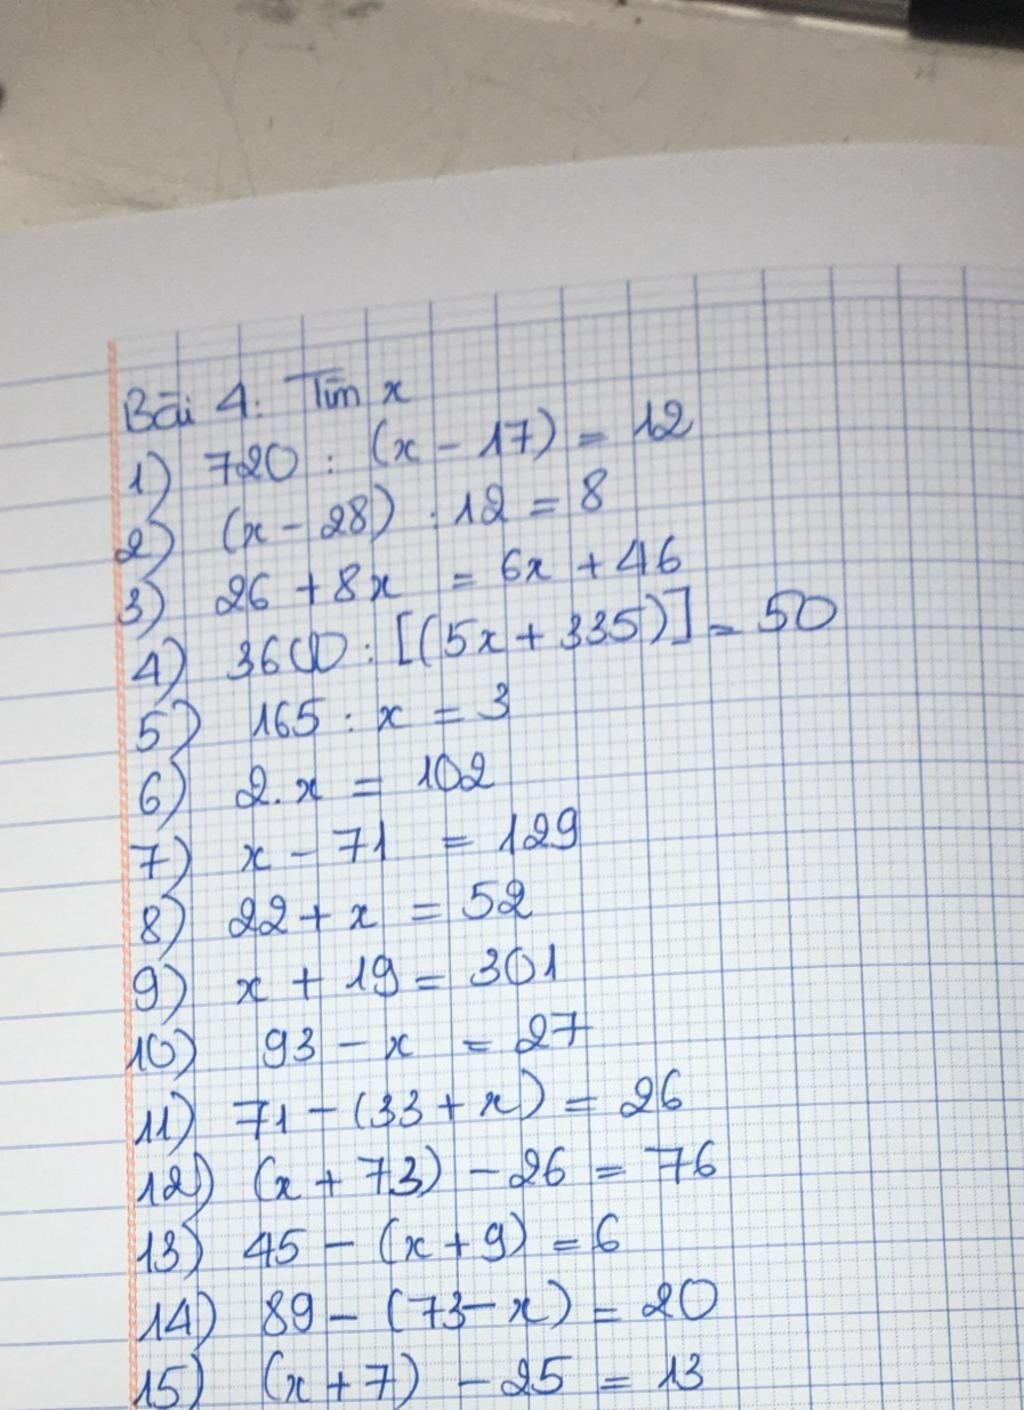 Bài 4: Tìm x
1) 720 : (x - 17) = 12
2) (x - 28) : 12 = 8
3) 26 + 8x = 6x + 46
4) 3600 : [(5x + 335)] = 50
5) 165 : x = 3
6) 2.x = 102
7) x - 71 = 129
8) 22 + x = 52
9) x + 19 = 301
10) 93 - x = 27
11) 71 - (33 + x) = 26
12) (x + 73) - 26 = 76
13) 45 - (x + 9) = 6
14) 89 - (73 - x) = 20
15) (x + 7) - 25 = 13